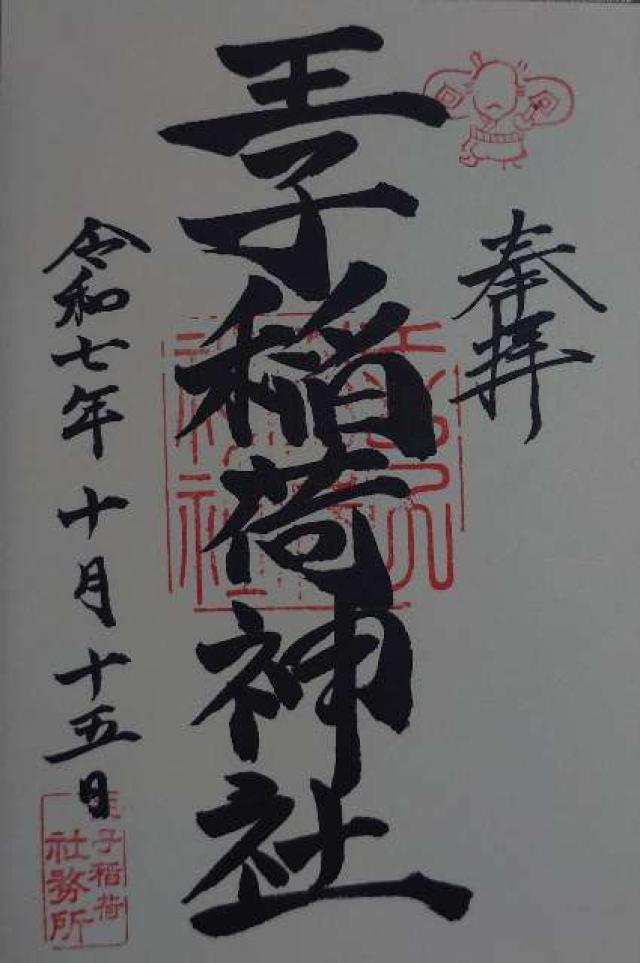 奉拝
王子稲荷神社
令和七年十月十五日
王子稲荷
社務所